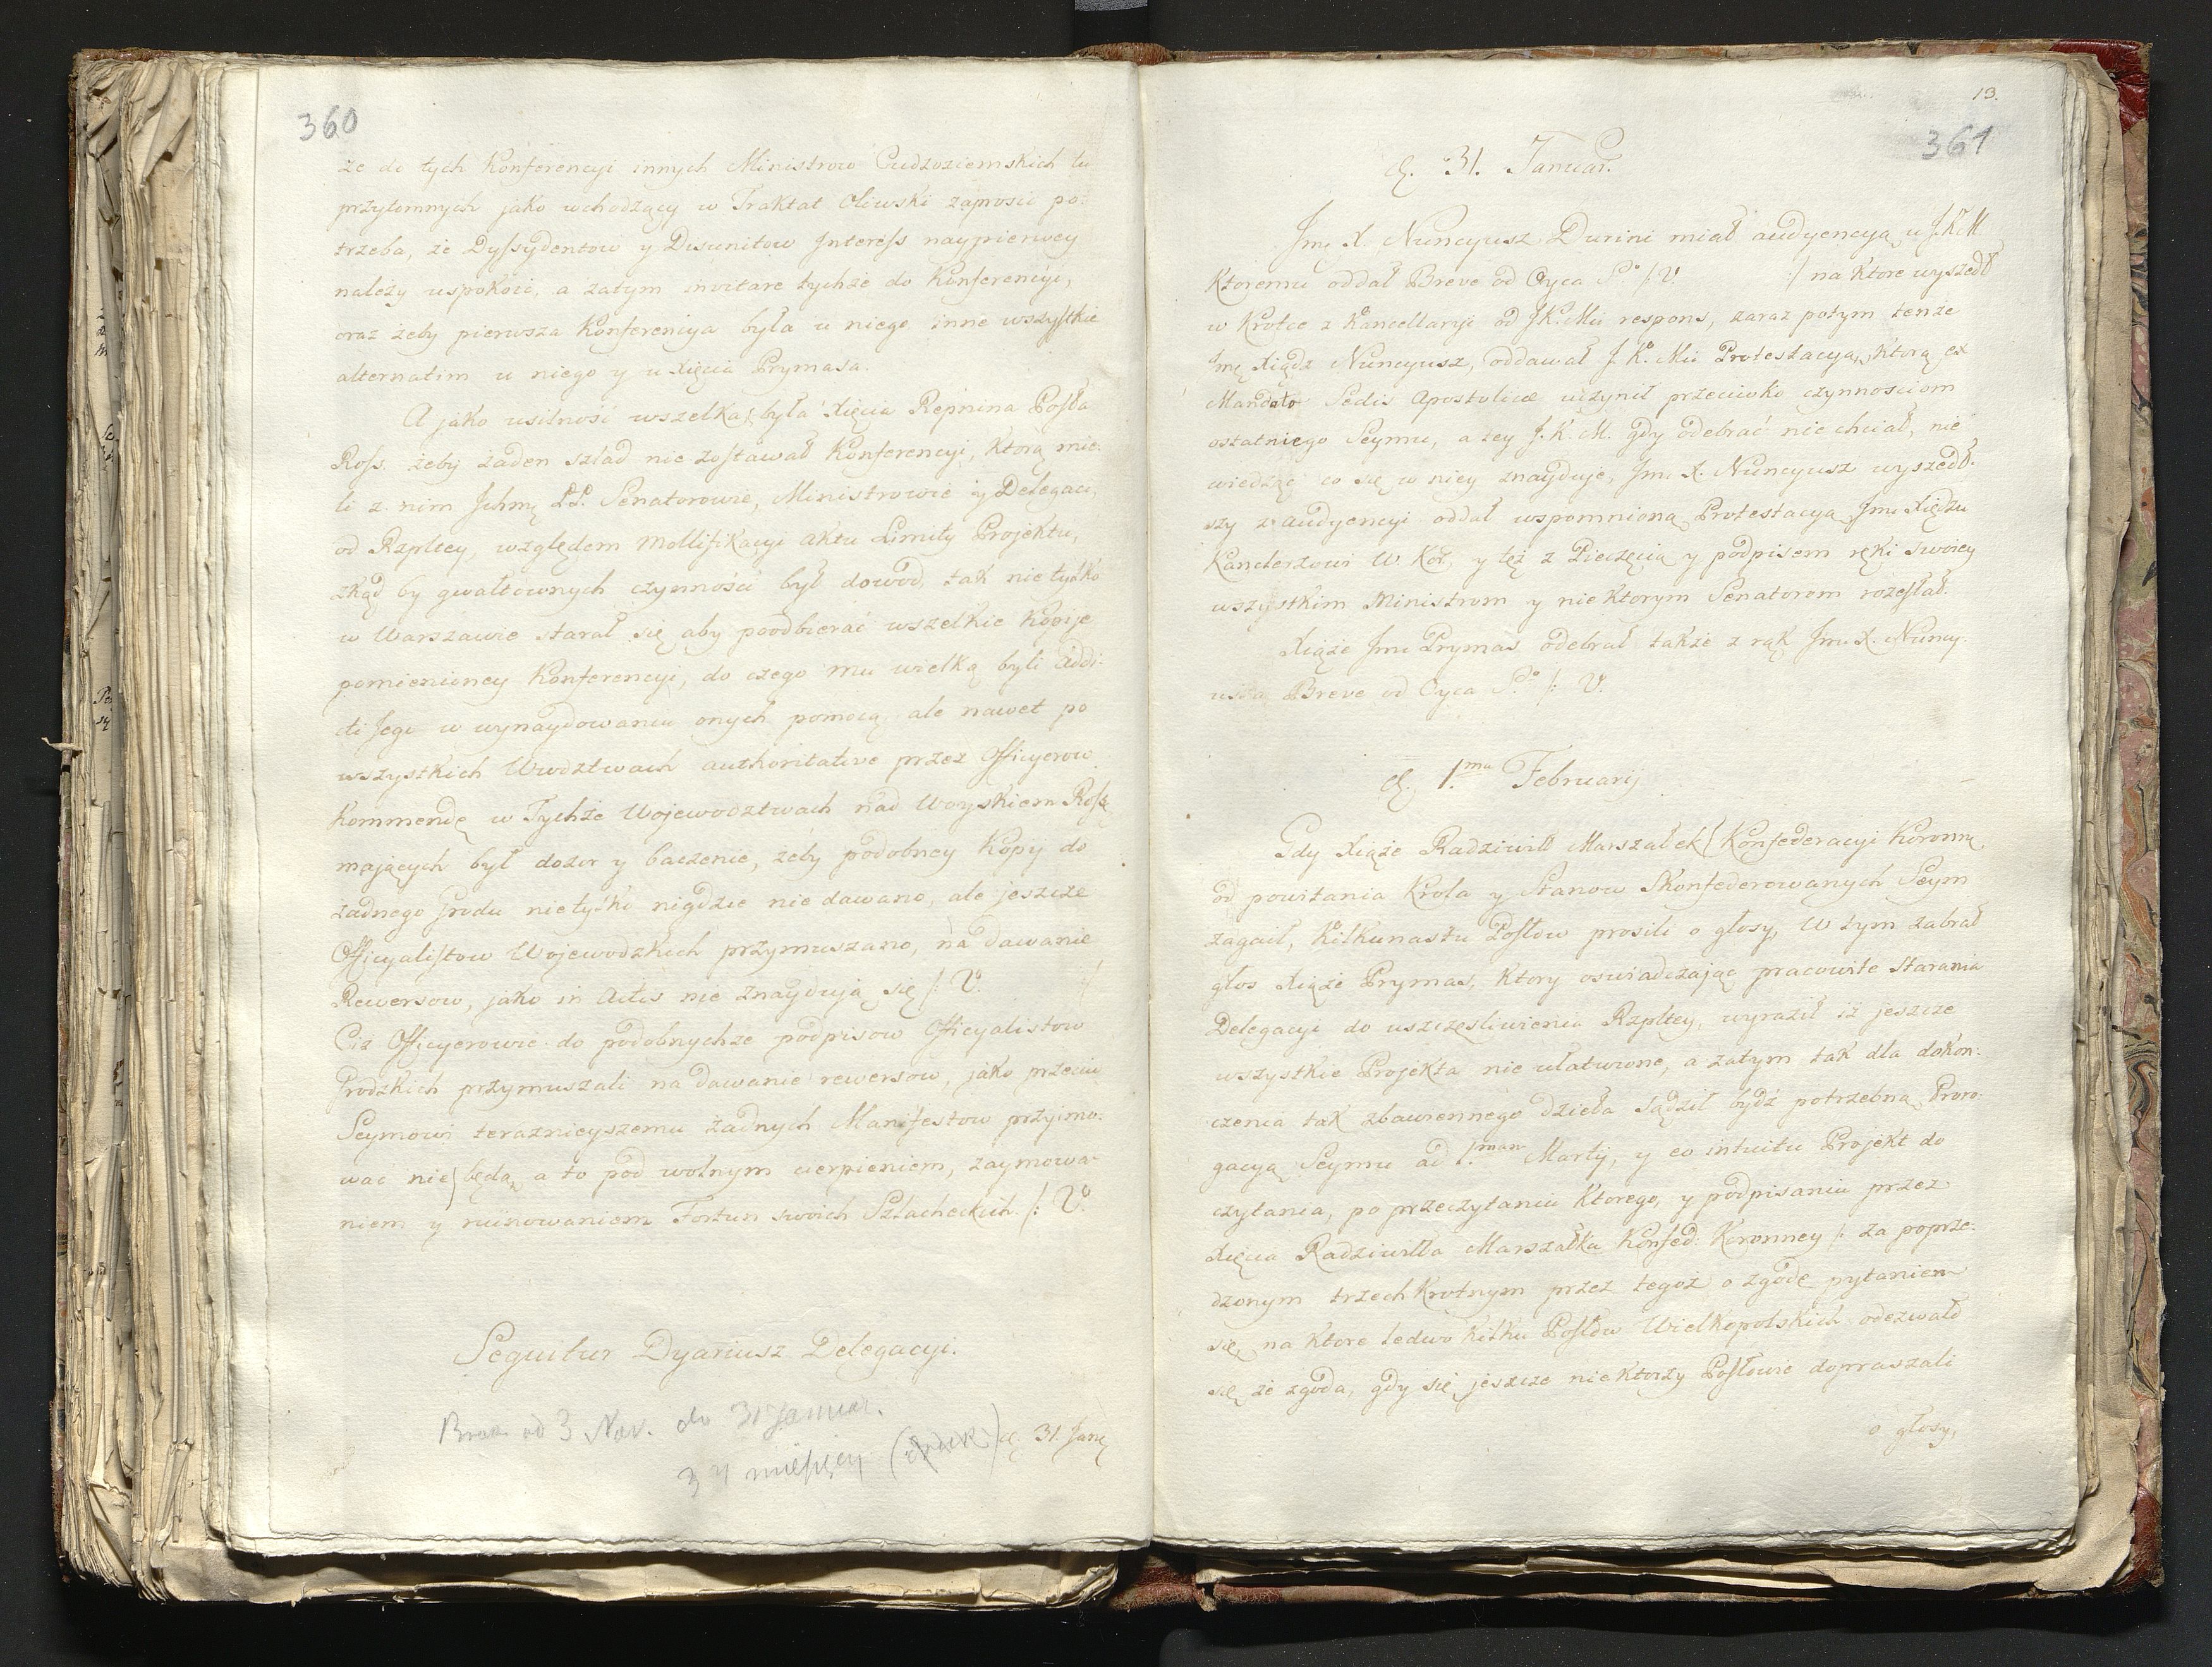 360
że do tych Konferencyi innych Ministrow Cudzoziemskich tu
przytomnych jako wchodzący w Traktat Oliwski zaprosić po:
trzeba, że Dyssydentow y Disunitow Interess naypierwey
należy uspokoić, a zatym invitare tychże do Konferencyi,
oraz żeby pierwsza Konferencya była u niego, inne wszystkie
alternatim u niego y u Xięcia Prymasa.
A jako usilność wszelka była Xięcia Repnina Posła
Ross. żeby żaden szlad nie zostawał Konferencyi, Ktorą mie:
li z nim Ichmę PP. Senatorowie, Ministrowie y Delegaci,
od Rzpltey, względem Mollifikacyi Aktu Limity Projektu,
zkąd by gwałtownych czynności był dowod, tak nie tylko
w Warszawie starał się aby poodbierać wszelkie Kopije
pomienioney Konferencyi, do czego mu wielką byli Addi:
cti Jego w wynaydowaniu onych pomocą, ale nawet po
wszystkich Wwdztwach authoritative przez Officyerow
Kommendę w Tychże Wojewodztwach nad Woyskiem Ross
mających był dozor y baczenie, żeby podobney Kopy do
żadnego Grodu nietylko nigdzie nie dawano, ale jeszcze
Officyalistow Wojewodzkich przymuszano, na dawanie
Rewersow, jako in Actis nie znaydują się /: V. :/
Ciż Officyerowie do podobnychże podpisow Officyalistow
Grodzkich przymuszali na dawanie rewersow, jako przeciw
Seymowi teraznieyszemu żadnych Manifestow przyimo:
wać nie będą, a to pod wolnym cierpieniem, zaymowa
niem y ruinowaniem Fortun swoich Szlacheckich. /: V.
Sequitur Dyariusz Delegacyi.
Brak od 3 Nov. do 31 Januar.
3 miesięcy
d. 31. Janę
13.
361
d. 31. Januar.
Jmę X. Nuncyusz Durini miał audyencyą u J.K.M.
Ktoremu oddał Breve od Oyca S.º /: V. :/ na Ktore wyszedł
w Krotce z Kancellaryi od J.K.Mci respons, zaraz potym tenże
Jmę Xiądz Nuncyusz, oddawał J. K. Mci Protestacyą, Ktorą ex
Mandato Sedis Apostolicæ uczynił przeciwko czynnościom
ostatniego Seymu, a tey J. K. M. gdy odebrać nie chciał, nie
wiedząc co się w niey znayduje, Jmę X. Nuncyusz wyszedł:
szy z audyencyi oddał wspomnioną Protestacyą Jmę Xiędzu
Kanclerzowi W. Kor, y też z Pieczęcią y podpisem ręki swoiey
wszystkim Ministrom y nie Ktorym Senatorom rozesłał.
Xiąże Jmę Prymas odebrał także z rąk Jmę X. Nuncy:
usza Breve od Oyca S.º /: V.
d. 1.ma Februarij
Gdy Xiąże Radziwiłł Marszałek Konfederacyi Koronnę
od powitania Krola y Stanow Skonfederowanych Seym
zagaił, Kilkunastu Posłow prosili o głosy, W tym zabrał
głos Xiąże Prymas, Ktory oswiadczając pracowite starania
Delegacyi do uszczęsliwienia Rzpltey, wyraził iż jeszcze
wszystkie Projekta nie ułatwione, a zatym tak dla dokon:
czenia tak zbawiennego dzieła sądził bydź potrzebną Proro:
gacyą Seymu ad 1.mam Martij, y eo intuitu Projekt do
czytania, po przeczytaniu Ktorego, y podpisaniu przez
Xięcia Radziwiłła Marszałka Konfed: Koronney /: za poprze:
dzonym trzech Krotnym przez tegoż o zgodę pytaniem
się, na Ktore ledwo Kilku Posłow Wielkopolskich odezwało
się że zgoda, gdy się jeszcze nie Ktorzy Posłowie dopraszali
o głosy,